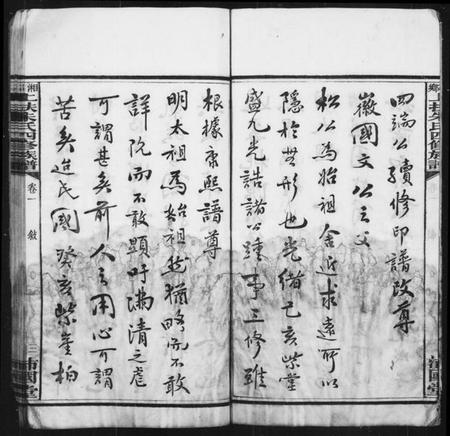 四端公續修印譜改尊
徽國文公之父
松公為始祖舍近求遠所以
隱於無形也光緒己亥紫堂
盛九光誥諸公踵事三修雖
根據康熙譜尊
明太祖為始祖然猶略而不敢
詳隱而不敢顯吁滿清之虐
可謂甚矣前人之用心可謂
苦矣迨民國癸亥紫奎柏
四修族譜
卷一
敘